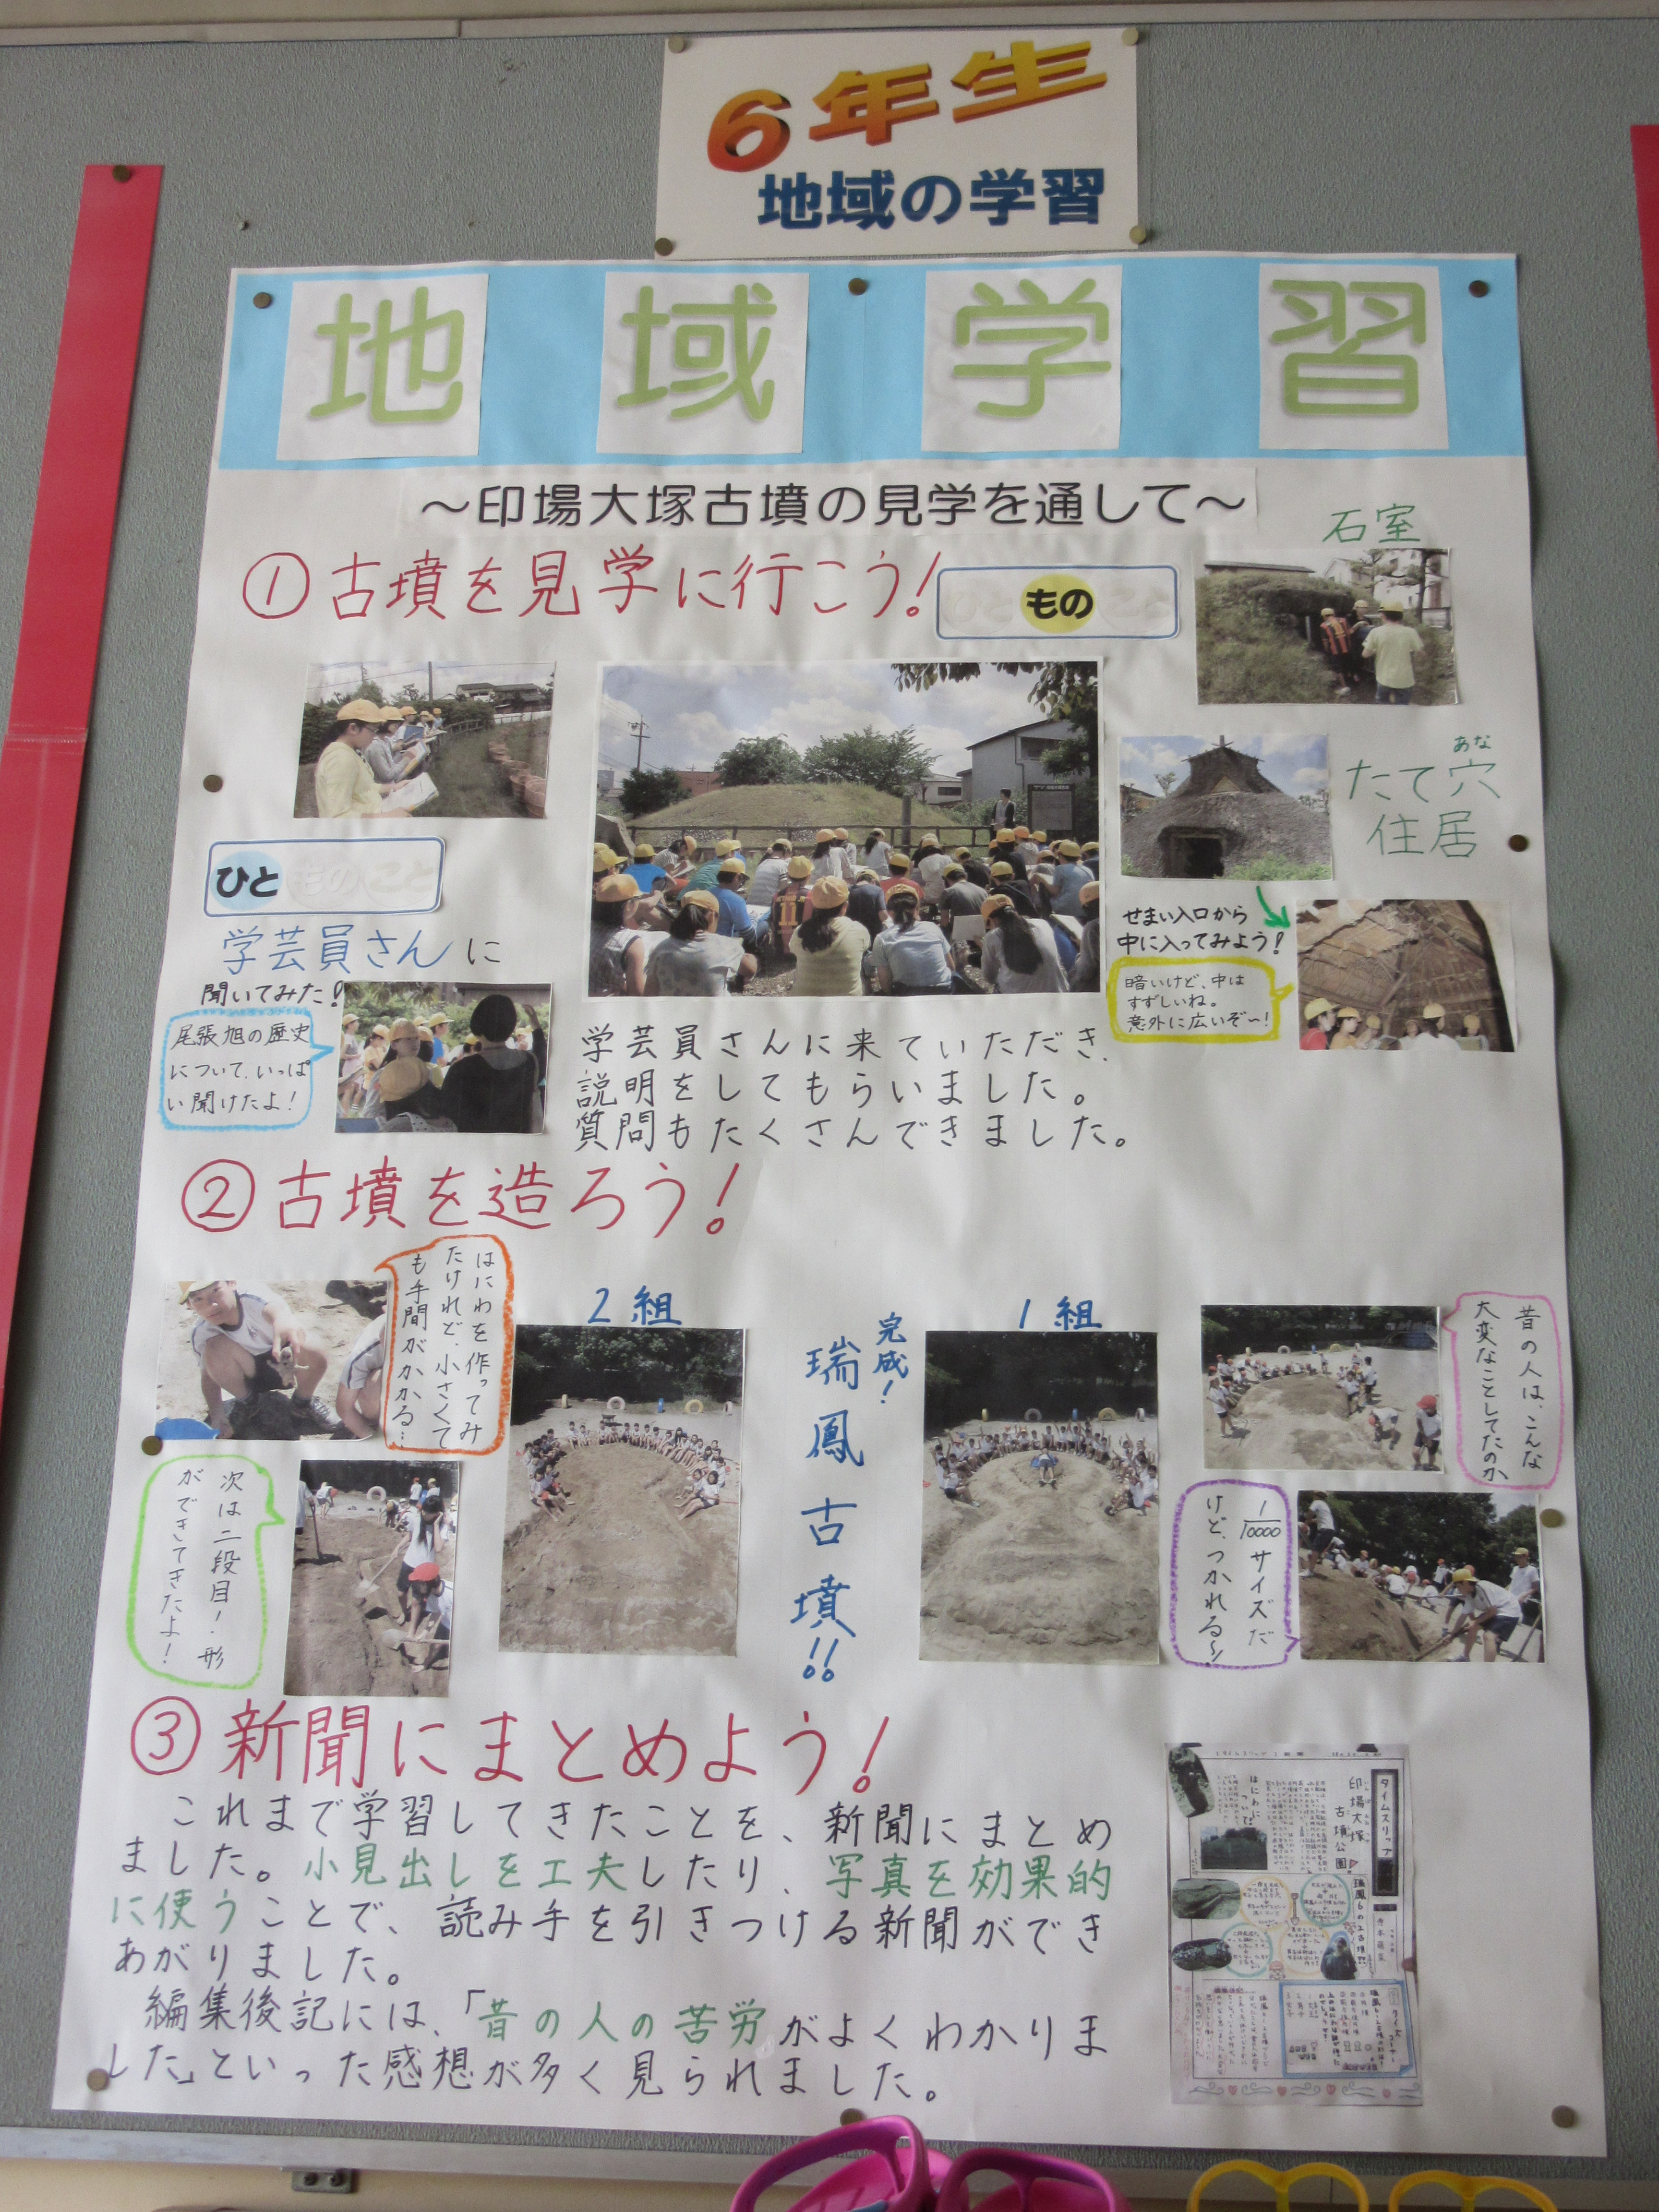 6年生
地域の学習
地域学習
～印場大塚古墳の見学を通して～
①古墳を見学に行こう！
ひと もの こと
石室
あな
たて穴
住居
せまい入口から
中に入ってみよう！
暗いけど、中は
すずしいね。
意外に広いぞ～！
ひと もの こと
学芸員さんに
聞いてみた！
尾張旭の歴史
について、いっぱ
い聞けたよ！
学芸員さんに来ていただき、
説明をしてもらいました。
質問もたくさんできました。
②古墳を造ろう！
はにわを作ってみ
たけれど、小さくて
も手間がかかる…
次は二段目！形
ができてきたよ！
2組
完成！
瑞鳳古墳！！
1組
昔の人は、こんな
大変なことしてたのか
1/10000サイズだ
けど、つかれる～
③新聞にまとめよう！
これまで学習してきたことを、新聞にまとめ
ました。小見出しを工夫したり、写真を効果的
に使うことで、読み手を引きつける新聞ができ
あがりました。
編集後記には、「昔の人の苦労がよくわかりま
した」といった感想が多く見られました。
タイムスリップ
印場大塚
古墳公園
はにわに
ついて